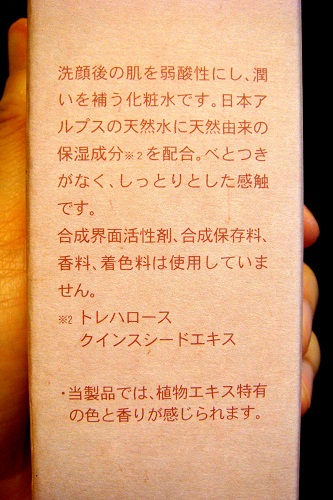 洗顔後の肌を弱酸性にし、潤
いを補う化粧水です。日本ア
ルプスの天然水に天然由来の
保湿成分※2を配合。べとつき
がなく、しっとりとした感触
です。
合成界面活性剤、合成保存料、
香料、着色料は使用していま
せん。
※2 トレハロース
クインスシードエキス
・当製品では、植物エキス特有
の色と香りが感じられます。